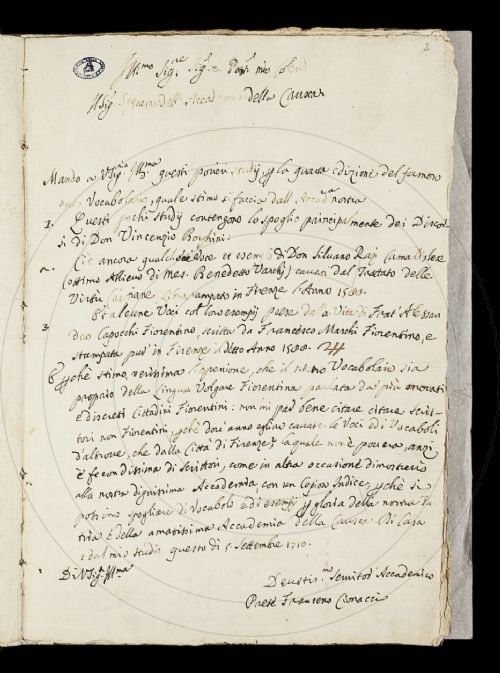 2
Ill.mo Sig.re Sig.r e Pad.n mio Colend
Il Sig Segretario dell' Accademia della Crusca
Mando a V Sig.ria Ill.ma questi poveri studj, p la quarta edizione del famoso
nostro Vocabolario, quale stimo si faccia dall' Accad.a nostra
1. Questi pochi studj contengono lo spoglio principalmente dei Discor
si di Don Vincenzio Borghini:
2. C'è ancora qualche Voce et esempj di Don Silvano Razzi Camaldolese
(ottimo Allievo di Mes. Benedetto Varchj) cavati dal Trattato delle
Virtu stampato in Firenze l'Anno 15
3 Ei alcune Voci col loro esempj prese dalla Vita di Frat' Alessan
dro Capocchi Fiorentino, scritta da Francesco Marchi Fiorentino, e
stampata pur in Firenze il detto Anno 15
E pche stimo verissima l'openione, che il nro Vocabolario sia
proprio della Lingua Volgare Fiorentina parlata da' più onorati
e discreti Cittadini Fiorentini: non mi par bene citare citare scrit
tori non Fiorentini, pche dove anno eglino cavate le Voci ed i Vocaboli
d'altrove, che dalla Città di Firenze? la quale non è povera, anzi
è fecondissima di scrittori, come in altra occasione dimostrerò
alla nostra dignissima Accademia con un Copioso Indice, pche si
possino spogliare di Vocaboli ed esempj p gloria della nostra Pa
tria e della amatissima Accademia della Crusca. Di Casa
e dal mio studio questo dì 5 Settembre 1710.
Di V Sig.ria Ill.ma
Devotis.mo Servitor Accademico
Prete Francesco Cionacci